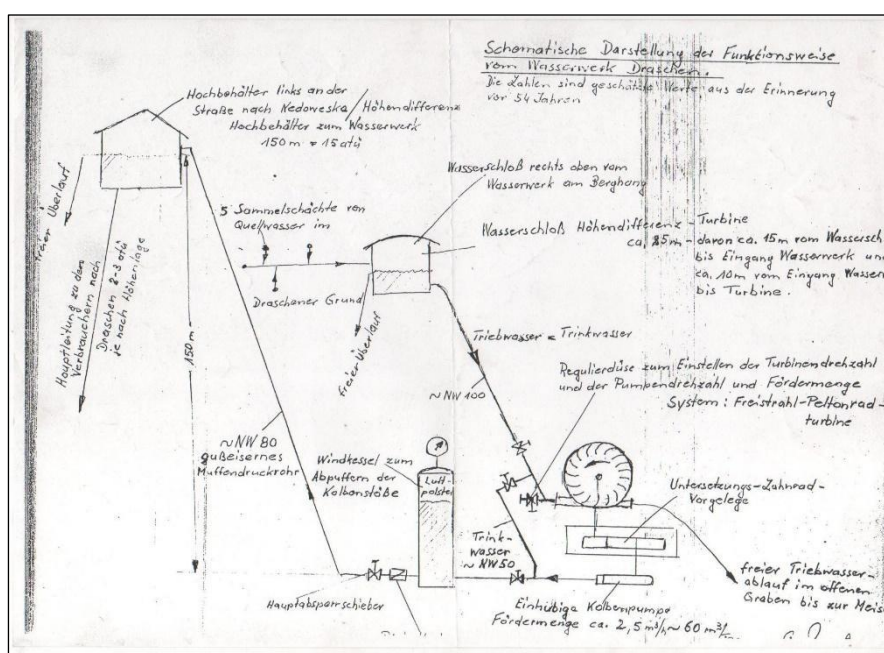 Schematische Darstellung der Funktionsweise
vom Wasserwerk Draschen.
Die Zahlen sind geschätzte Werte aus der Erinnerung
vor 54 Jahren
Hochbehälter links an der
Straße nach Nedoweska/Höhendifferenz
Hochbehälter zum Wasserwerk
150 m = 15 atü
freier Überlauf
Hauptleitung zu den
Verbrauchern nach
Draschen 2-3 atü
je nach Höhenlage
150 m
5 Sammelschächte von
Quellwasser im
Draschener Grund
Wasserschloß rechts oben vom
Wasserwerk am Berghang
Wasserschloß Höhendifferenz - Turbine
ca. 25m - davon ca. 15m vom Wassersch
bis Eingang Wasserwerk und
ca. 10m vom Eingang Wasser
bis Turbine.
freier Überlauf
Triebwasser = Trinkwasser
~ NW 100
Regulierdüse zum Einstellen der Turbinendrehzahl
und der Pumpendrehzahl und Fördermenge
System: Freistrahl-Peltonrad-
turbine
~ NW 80
gußeisernes
Muffendruckrohr
Windkessel zum
Abpuffern der
Kolbenstöße
Luft-
polster
Untersetzungs-Zahnrad-
Vorgelege
Trink-
wasser
~ NW 50
freier Triebwasser-
ablauf im offenen
Graben bis zur Meis
Hauptabsperrschieber
Einhübige Kolbenpumpe
Fördermenge ca. 2,5 m³/h ~ 60 m³/